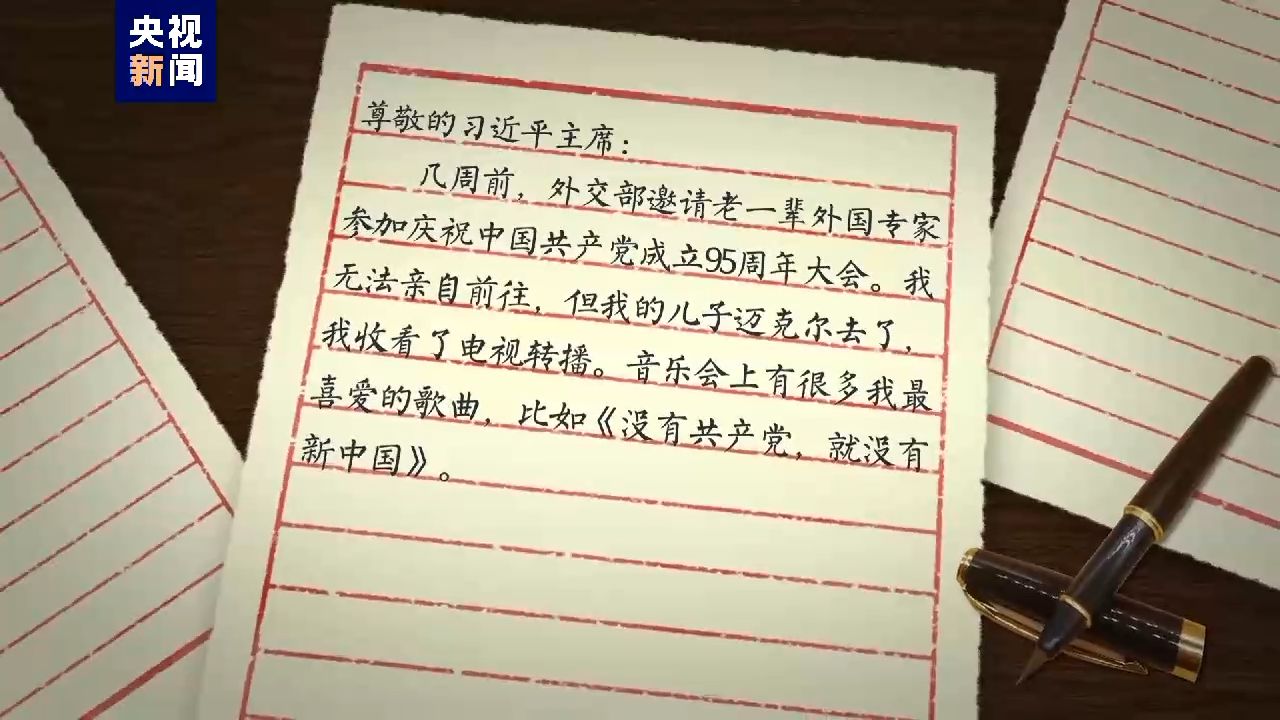 央视
新闻
尊敬的习近平主席：
几周前，外交部邀请老一辈外国专家
参加庆祝中国共产党成立95周年大会。我
无法亲自前往，但我的儿子迈克尔去了，
我收看了电视转播。音乐会上有很多我最
喜爱的歌曲，比如《没有共产党，就没有
新中国》。